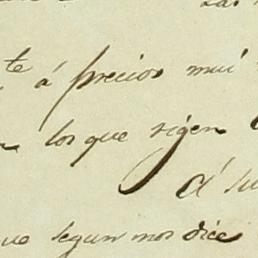 te á precios mui
los que rigen
á su
ue segun nos dice